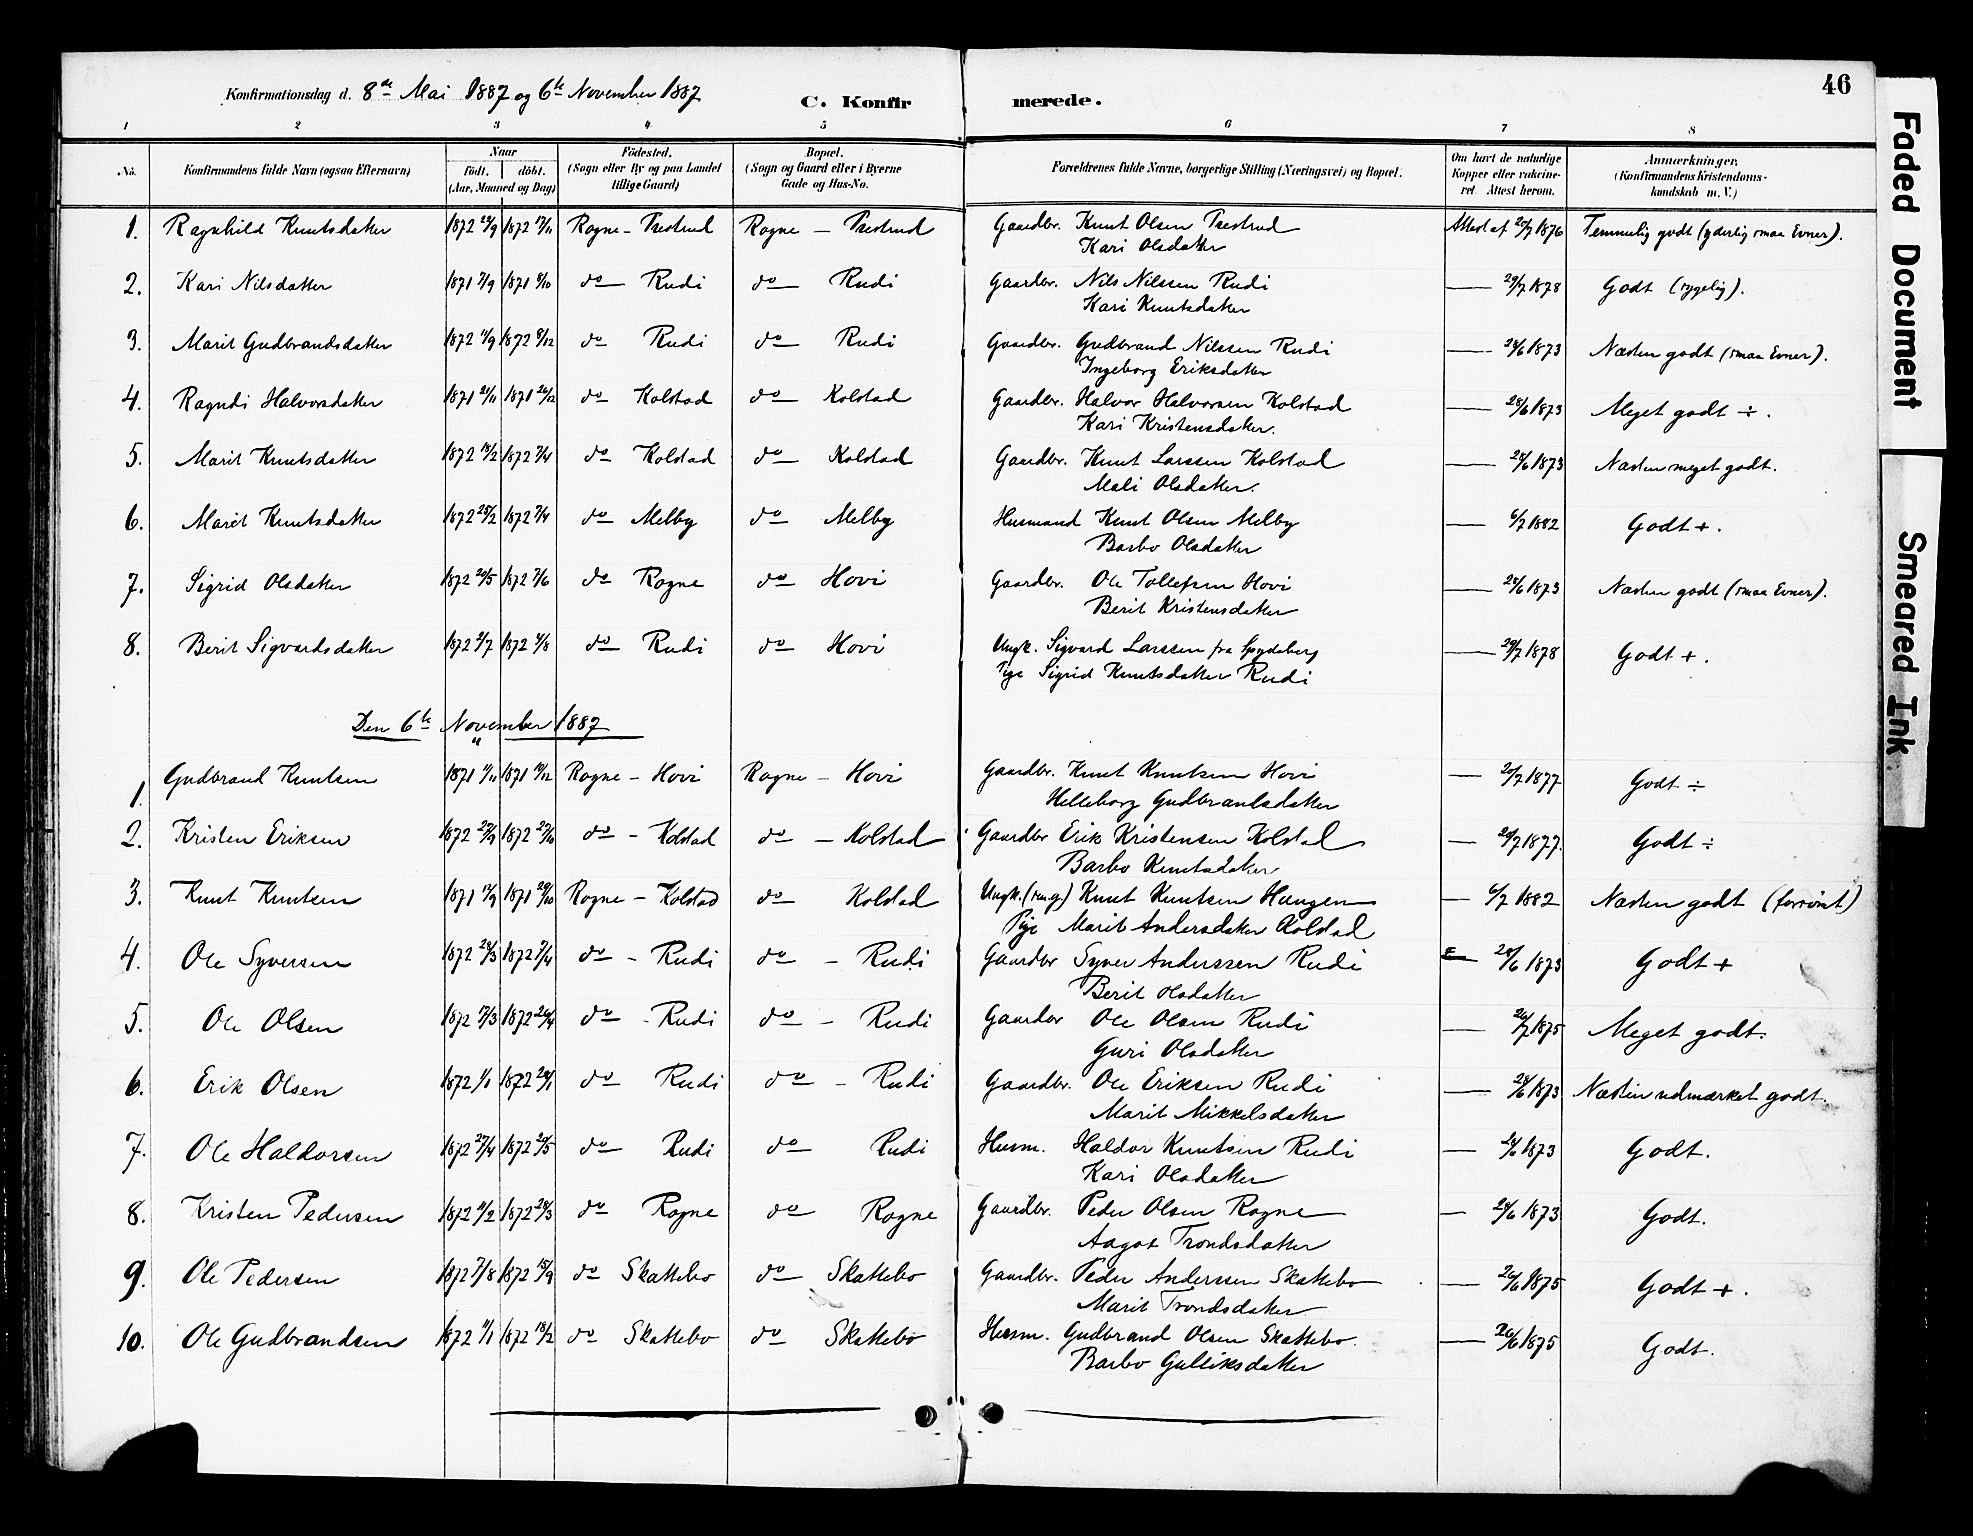 46
Konfirmationsdag d. 8de Mai 1887 og 6te November 1887
C. Konfirmerede.
1 2 3 4 5 6 7 8
No. Konfirmandens fulde Navn (ogsaa Efternavn) Naar født. døbt. (Aar, Maaned og Dag) Fødested. (Sogn eller By og paa Landet tillige Gaard) Bopæl. (Sogn og Gaard eller i Byerne Gade og Hus-No. Forældrenes fulde Navne, borgerlige Stilling (Næringsvei) og Bopæl. Om havt de naturlige Kopper eller vakcineret. Attest herom. Anmærkninger. (Konfirmandens Kristendomskundskab m. V.)
1. Ragnhild Knutsdatter 1872 29/9 1872 17/11 Rogne - Præstrud Rogne - Præstrud Gaardbr. Knut Olsen Præstrud Attest af 20/7 1876 Temmelig godt (yderlig smaa Evner).
Kari Olsdatter
2. Kari Nilsdatter 1871 7/9 1871 8/10 do Rudi do Rudi Gaardbr. Nils Nilssen Rudi — 29/7 1878 Godt (sygelig).
Kari Knutsdatter
3. Marit Gudbrandsdatter 1872 11/9 1872 8/12 do Rudi do Rudi Gaardbr. Gudbrand Nilssen Rudi — 24/6 1873 Næsten godt (smaa Evner).
Ingeborg Eriksdatter
4. Ragndi Halvorsdatter 1871 21/11 1871 26/12 do Kolstad do Kolstad Gaardbr. Halvor Halvorsen Kolstad — 28/6 1873 Meget godt ÷.
Kari Kristensdatter.
5. Marit Knutsdatter 1872 18/2 1872 7/4 do Kolstad do Kolstad Gaardbr. Knut Larssen Kolstad — 28/6 1873 Næsten meget godt.
Mali Olsdatter.
6. Marit Knutsdatter 1872 25/2 1872 7/4 do Melby do Melby Husmand Knut Olsen Melby — 6/7 1882 Godt +.
Barbo Olsdatter
7. Sigrid Olsdatter 1872 20/5 1872 7/6 do Rogne do Hovi Gaardbr. Ole Tollefsen Hovi — 24/6 1873 Næsten godt (smaa Evner).
Berit Kristensdatter
8. Berit Sigvardsdatter 1872 2/7 1872 4/8 do Rudi do Hovi Ungk. Sigvard Larssen fra Spydeberg — 29/7 1878 Godt +.
Pige Sigrid Knutsdatter Rudi
Den 6te November 1887
1. Gudbrand Knutsen 1871 11/11 1871 10/12 Rogne - Hovi Rogne - Hovi Gaardbr. Knut Knutsen Hovi — 20/7 1877 Godt ÷
Helleborg Gudbrandsdatter
2. Kristen Eriksen 1872 22/9 1872 27/10 do - Kolstad do - Kolstad Gaardbr Erik Kristensen Kolstad — 20/7 1877. Godt ÷
Barbo Knutsdatter
3. Knut Knutsen 1871 17/9 1871 29/10 Rogne - Kolstad do Kolstad Ungk. Knut Knutsen Haugen — 6/7 1882 Næsten godt
Pige Marit Andersdatter Kolstad
4. Ole Syversen 1872 24/3 1872 7/4 do - Rudi do - Rudi Gaardbr Syver Anderssen Rudi — 28/6 1873 Godt +
Berit Olsdatter
5. Ole Olsen 1872 17/3 1872 28/4 do - Rudi do - Rudi Gaardbr Ole Olsen Rudi — 26/7 1875 Meget godt.
Guri Olsdatter
6. Erik Olsen 1872 1/1 1872 28/1 do Rudi do - Rudi Gaardbr. Ole Eriksen Rudi — 28/6 1873 Næsten udmærket godt.
Marit Mikkelsdatter
7. Ole Haldorsen 1872 27/4 1872 26/5 do Rudi do Rudi Husm. Haldor Knutsen Rudi — 24/6 1873 Godt.
Kari Olsdatter
8. Kristen Pedersen 1872 11/2 1872 29/3 do Rogne do Rogne Gaardbr. Peder Olsen Rogne — 24/6 1873 Godt.
Aagot Trondsdatter
9. Ole Pedersen 1872 7/8 1872 15/9 do Skattebo do Skattebo Gaardbr. Peder Anderssen Skattebo — 26/6 1875 Godt +.
Marit Trondsdatter
10. Ole Gudbrandsen 1872 11/1 1872 18/2 do Skattebo do Skattebo Husm. Gudbrand Olsen Skattebo. — 26/6 1875 Godt.
Barbo Gulliksdatter
Faded Document
Smeared Ink